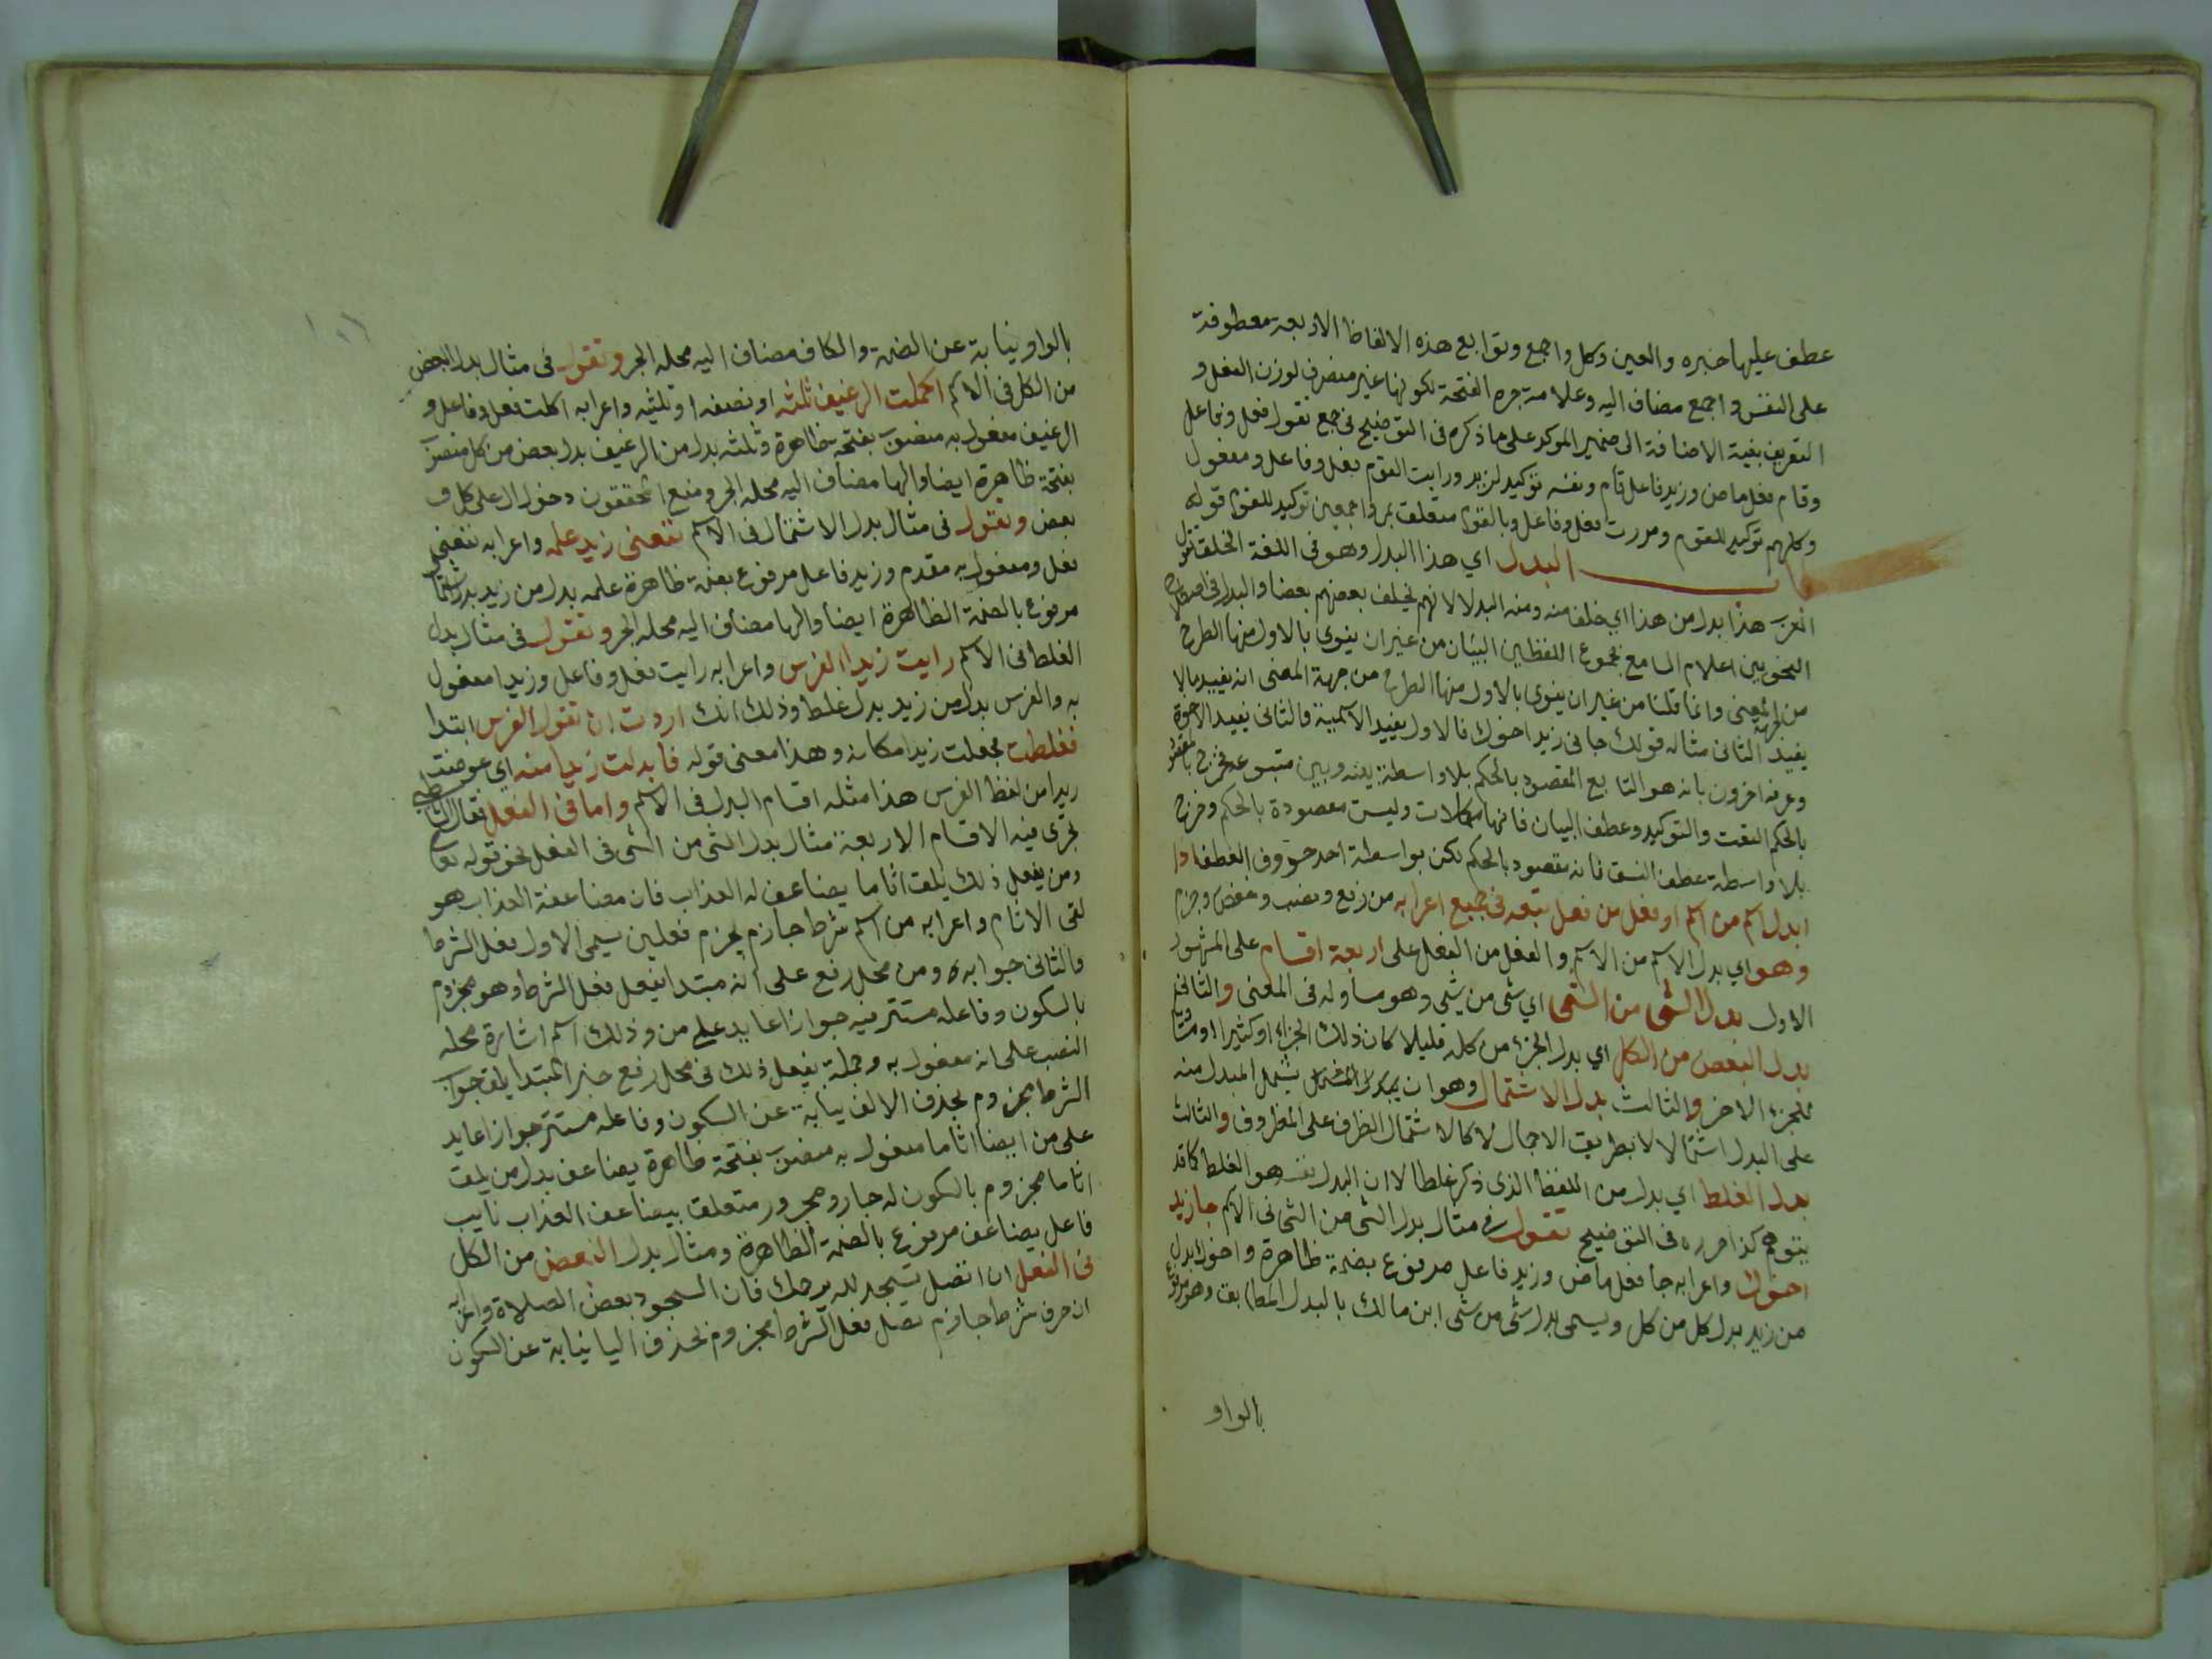 عطف عليها خبره والعين وكل واجمع وتوابع هذه الالفاظ الاربعة معطوفة
على النفس واجمع مضاف اليه وعلامة جره الفتحة لكونها غير منصرف لوزن الفعل و
التعريف بنية الاضافة الى ضمير الموكد على ما ذكره فى التوضيح فى جمع تقول فعل وفاعل
وقام فعل ماض وزيد فاعل قام ونفسه توكيد لزيد ورايت القوم فعل وفاعل ومفعول
وكلهم توكيد للقوم ومررت فعل وفاعل وبالقوم متعلق بمر واجمعين توكيد للقوم قوله
باب البدل اي هذا البدل وهو فى اللغة الخلف تقول
العرب هذا بدل من هذا اي خلفا منه ومنه البدلا لانهم يخلف بعضهم بعضا والبدل فى اصطلاح
النحويين اعلام السامع بمجموع اللفظين البيان من غير ان ينوى بالاول منهما الطرح
من جهة المعنى وانما قلنا من غير ان ينوى بالاول منهما الطرح من جهة المعنى انه يفيد مالا
يفيد الثانى مثاله قولك جانى زيد اخوك فالاول يفيد الاسمية والثانى يفيد الاخوة
وعرفه اخرون بانه هو التابع المقصود بالحكم بلا واسطة بينه وبين متبوعه فخرج بالمقصود
بالحكم النعت والتوكيد وعطف البيان فانها مكملات وليست مقصودة بالحكم وخرج
بلا واسطة عطف النسق فانه مقصود بالحكم لكن بواسطة احد حروف العطف اذا
ابدل اسم من اسم او فعل من فعل تبعه فى جميع اعرابه من رفع ونصب وخفض وجزم
وهو اي بدل الاسم من الاسم والفعل من الفعل على اربعة اقسام على المشهور
الاول بدل الشى من الشى اي شى من شى وهو مساوله فى المعنى والثانى
بدل البعض من الكل اي بدل الجزء من كله قليلا كان ذلك الجزء او كثيرا او مساويا
للجزء الاخر والثالث بدل الاشتمال وهو ان يشمل المبدل منه
على البدل اشتمالا لا بطريق الاجمال لا كاشتمال الظرف على المظروف والثالث
بدل الغلط اي بدل من اللفظ الذى ذكر غلطا لا ان البدل نفسه هو الغلط كما قد
يتوهم كذا حرره فى التوضيح تقول فى مثال بدل الشى من الشى فى الاسم جا زيد
اخوك واعرابه جا فعل ماض وزيد فاعل مرفوع بضمة ظاهرة واخوك بدل
من زيد بدل كل من كل ويسمى بدل شى من شى ابن مالك بالبدل المطابق وهو مرفوع
بالواو
بالواو نيابة عن الضمة والكاف مضاف اليه محله الجر وتقول فى مثال بدل البعض
من الكل فى الاسم اكلت الرغيف ثلثه او نصفه او ثلثيه واعرابه اكلت فعل وفاعل و
الرغيف مفعول به منصوب بفتحة ظاهرة وثلثه بدل من الرغيف بدل بعض من كل منصوب
بفتحة ظاهرة ايضا والها مضاف اليه محله الجر ومنع المحققون دخول ال على كل و
بعض وتقول فى مثال بدل الاشتمال فى الاسم نفعنى زيد علمه واعرابه نفعنى
فعل ومفعول به مقدم وزيد فاعل مرفوع بضمة ظاهرة علمه بدل من زيد بدل اشتمال
مرفوع بالضمة الظاهرة ايضا والها مضاف اليه محله الجر وتقول فى مثال بدل
الغلط فى الاسم رايت زيدا الفرس واعرابه رايت فعل وفاعل وزيدا مفعول
به والفرس بدل من زيد بدل غلط وذلك انك اردت ان تقول الفرس ابتدا
فغلطت فجعلت زيدا مكانه وهذا معنى قوله فابدلت زيدا منه اي عوضت
زيدا من لفظ الفرس هذا مثله اقسام البدل فى الاسم واما فى الفعل فقال الشاطبي
تجرى فيه الاقسام الاربعة مثال بدل الشى من الشى فى الفعل نحو قوله تعالى
ومن يفعل ذلك يلق اثاما يضاعف له العذاب فان مضاعفة العذاب هو
لقى الاثام واعرابه من اسم شرط جازم يجزم فعلين يسمى الاول فعل الشرط
والثانى جوابه ومن محل رفع على انه مبتدا يفعل فعل الشرط وهو مجزوم
بالسكون وفاعله مستتر فيه جوازا عايد على من وذلك اسم اشارة محله
النصب على انه مفعول به وجملة يفعل ذلك فى محل رفع خبر المبتدا يلق جواب
الشرط مجزوم بحذف الالف نيابة عن السكون وفاعله مستتر جوازا عايد
على من ايضا اثاما مفعول به منصوب بفتحة ظاهرة يضاعف بدل من يلق
اثاما مجزوم بالسكون له جار ومجرور متعلق بيضاعف العذاب نايب
فاعل يضاعف مرفوع بالضمة الظاهرة ومثال بدل البعض من الكل
فى الفعل ان تصل تسجد لله يرحمك فان السجود بعض الصلاة واعرابه
ان حرف شرط جازم تصل فعل الشرط مجزوم بحذف اليا نيابة عن السكون